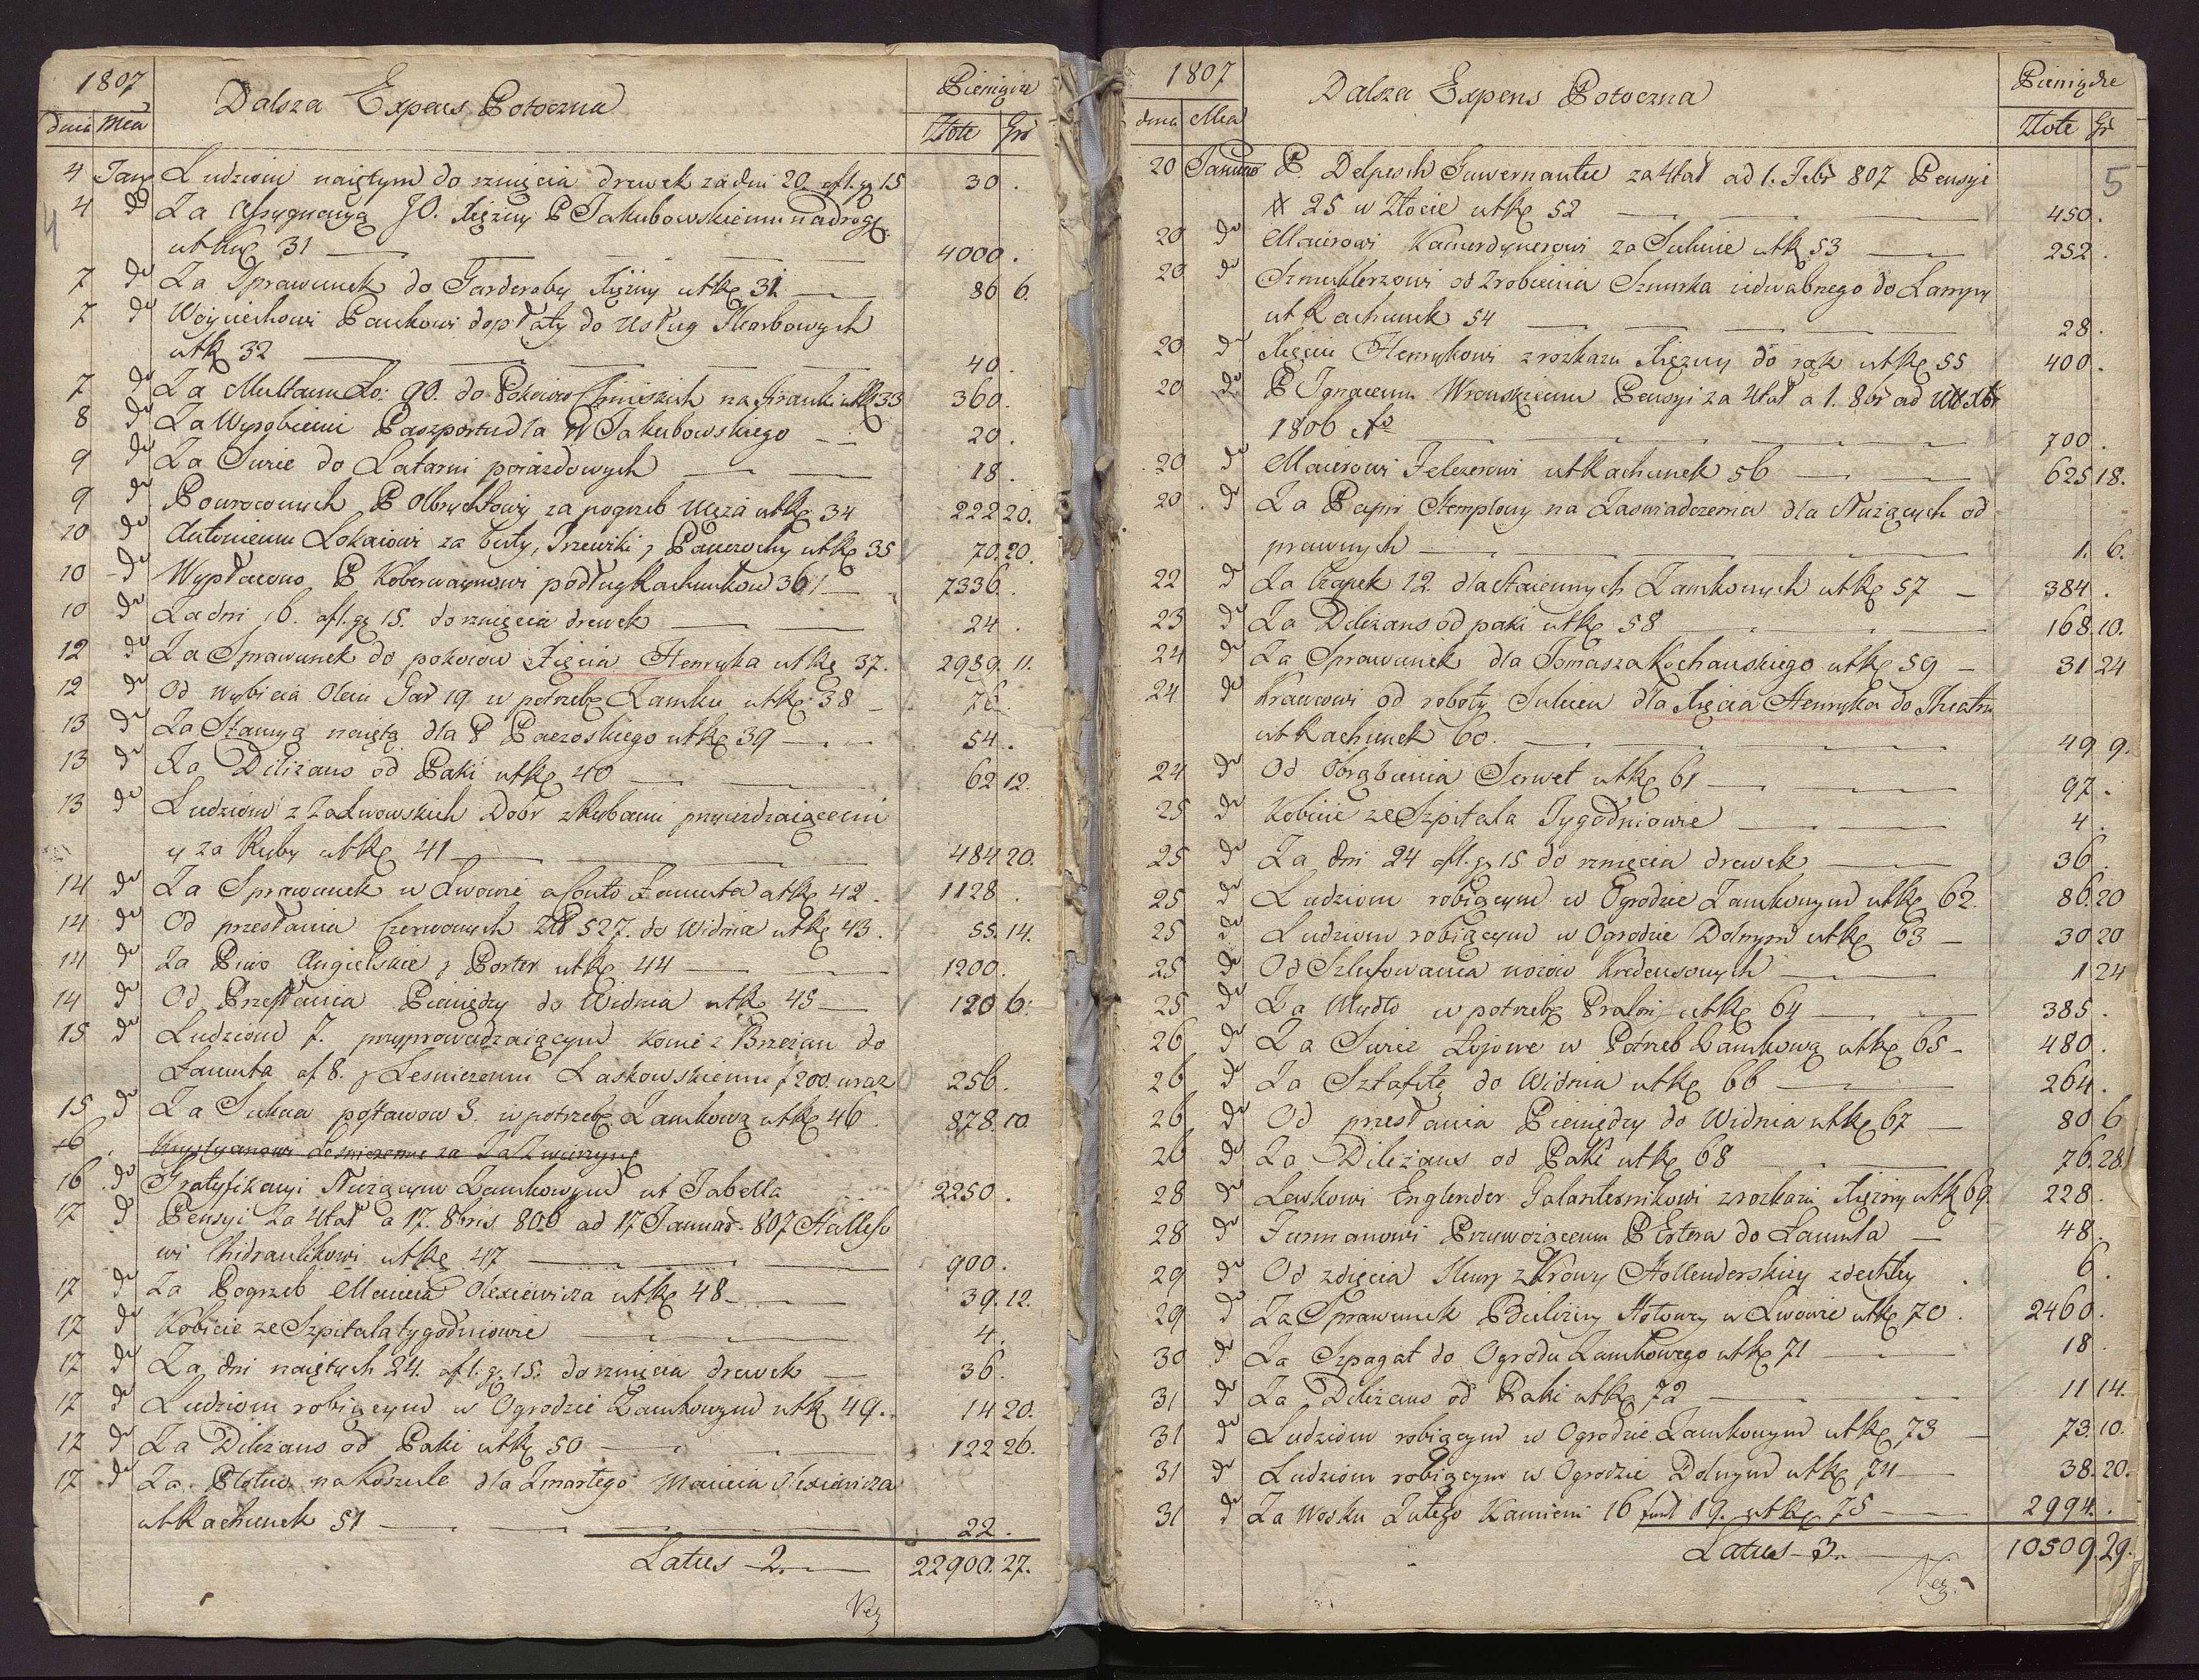 1807
Dalsza Expens Potoczna
Pieniądze
dnia Mca
Złote Gr
4 Jan Ludziom naiętym do rznięcia drewek za dni 20. af1. gr 15 30.
4 do Za Assygnacyą JO. Xiężny P Jakubowskiemu na drogę
ut Rng 31 4000.
7 do Za Sprawunek do Garderoby Xiężny ut Rg 31 86 6.
7 do Woyciechowi Paukowi dopłaty do Usług Skarbowych
ut Rg 32 40.
7 do Za Multanu Ło: 90. do Pokoiow Chinskich na firanki ut Rg 33 360.
8 do Za Wyrobienie Paszportu dla P Jakubowskiego 20.
9 do Za Swice do Latarni poiazdowych 18.
9 do Powroconych P Olbrychtowy za pogrzeb Męża ut Rg 34 222 20.
10 do Antoniemu Lokaiowi za buty, Trzewiki, Panczochy ut Rg 35 70. 20.
10 do Wypłacono P Koberwaynowi podług Rachunkow 36 7336.
10 do Za dni 16. af1. gr 15. do rznięcia drewek 24.
12 do Za Sprawunek do pokoiow Xięcia Henryka ut Rg 37. 2989. 11.
12 do Od wybicia Oleiu Gar 19 w potrzebę Zamku ut Rg 38 76.
13 do Za Stancyą naiętą dla P Paczoskiego ut Rg 39 54.
13 do Za Diliżans od Paki ut Rg 40 62 12.
13 do Ludziom z Zalwowskich Dobr z Rybami przyieżdzaiącemi
y za Ryby ut Rg 41 484 20.
14 do Za Sprawunek w Lwowie a Conto Łancuta ut Rg 42. 1128.
14 do Od przesłania Czerwonych Zł 527. do Widnia ut Rg 43. 55. 14.
14 do Za Piwo Angielskie y Porter ut Rg 44 1200.
14 do Od Przesłania Pieniędzy do Widnia ut Rg 45 120 6.
15 do Ludziom 7. przyprowadzaiącym konie z Brzeżan do
Łancuta af 8. y Lesniczemu Laskowskiemu f 200. wraz 256.
15 do Za Sukna postawow 3. w potrzebę Zamkową ut Rg 46 878. 10.
16 Krystyanowi Lesniczemu za Zazwierzynę
16 do Gratyfikacyi Służącym Zamkowym ut Tabella 2250.
17 do Pensyi za 4tał a 17. 8bris 806 ad 17 Januar. 807 Halleso
wi Chidraulikowi ut Rg 47 900.
17 do Za Pogrzeb Macieia Olexiewicza ut Rg 48 39. 12.
17 do Kobicie ze Szpitala tygodniowie 4.
17 do Za dni naiętych 24. af1. g. 15. do rznięcia drewek 36.
17 do Ludziom robiącym w Ogrodzie Zamkowym ut Rg 49. 14 20.
17 do Za Diliżans od Paki ut Rg 50 122 26.
17 do Za Płotno na Koszule dla Zmarłego Macieia Olexiewicza
ut Rachunek 51 22.
Latus 2. 22900. 27.
1807
Dalsza Expens Potoczna
Pieniądze
dnia Mca
Złote Gr
5
20 Januar P. Delpesch Guwernantce za 4tał ad 1. Febr 807 Pensyi
# 25 w Złocie ut Rg 52 450.
20 do Maierowi Kamerdynerowi za Suknie ut Rg 53 252.
20 do Szmuklerzowi od Zrobienia Sznurka iedwabnego do Lampy
ut Rachunek 54 28.
20 do Xięciu Henrykowi z rozkazu Xiężny do rąk ut Rg 55 400.
20 do P Ignacemu Wronskiemu Pensyi za 4tał a 1. 8br ad Ult Xbr
1806 Ao 700.
20 do Maierowi Felczerowi ut Rachunek 56 625 18.
20 do Za Papir Stemplowy na Zaswiadczenia dla Służących od
prawnych 1. 6.
22 do Za Czapek 12 dla Staiennych Zamkowych ut Rg 57 384.
23 do Za Diliżans od paki ut Rg 58 168. 10.
24 do Za Sprawunek dla Tomasza Kochanskiego ut Rg 59 31 24
24 do Krawcowi od roboty Sukien dla Xięcia Henryka do Theatru
ut Rachunek 60. 49 9.
24 do Od Obrąbienia Serwet ut Rg 61 97.
25 do Kobicie ze Szpitala Tygodniowie 4.
25 do Za dni 24 af1. gr 15 do rznięcia drewek 36.
25 do Ludziom robiącym w Ogrodzie Zamkowym ut Rg 62. 86. 20
25 do Ludziom robiącym w Ogrodzie Dolnym ut Rg 63 30 20
25 do Od Szlufowania nożow Kredensowych 1 24
25 do Za Mydło w potrzebę Pralni ut Rg 64 385.
26 do Za Swice Łojowe w Potrzeb Zamkową ut Rg 65 480.
26 do Za Sztafetę do Widnia ut Rg 66 264.
26 do Od przesłania Pieniędzy do Widnia ut Rg 67 80 6
26 do Za Diliżans od Paki ut Rg 68 76. 28.
28 do Lewkowi Englender Galanternikowi z rozkazu Xiężny ut Rg 69 228.
28 do Furmanowi Przywożącemu P Estera do Łancuta 48.
29 do Od zdięcia Skury z Krowy Hollenderskiey zdechłey 6.
29 do Za Sprawunek Bielizny Stołowy w Lwowie ut Rg 70. 2460.
30 do Za Szpagat do Ogrodu Zamkowego ut Rg 71 18
31 do Za Diliżans od Paki ut Rg 72 11 14.
31 do Ludziom robiącym w Ogrodzie Zamkowym ut Rg 73 73. 10.
31 do Ludziom robiącym w Ogrodzie Dolnym ut Rg 74 38. 20.
31 do Za Wosku Żułtego Kamieni 16 funt 19. ut Rg 75 2994.
Latus 3. 10509. 29.